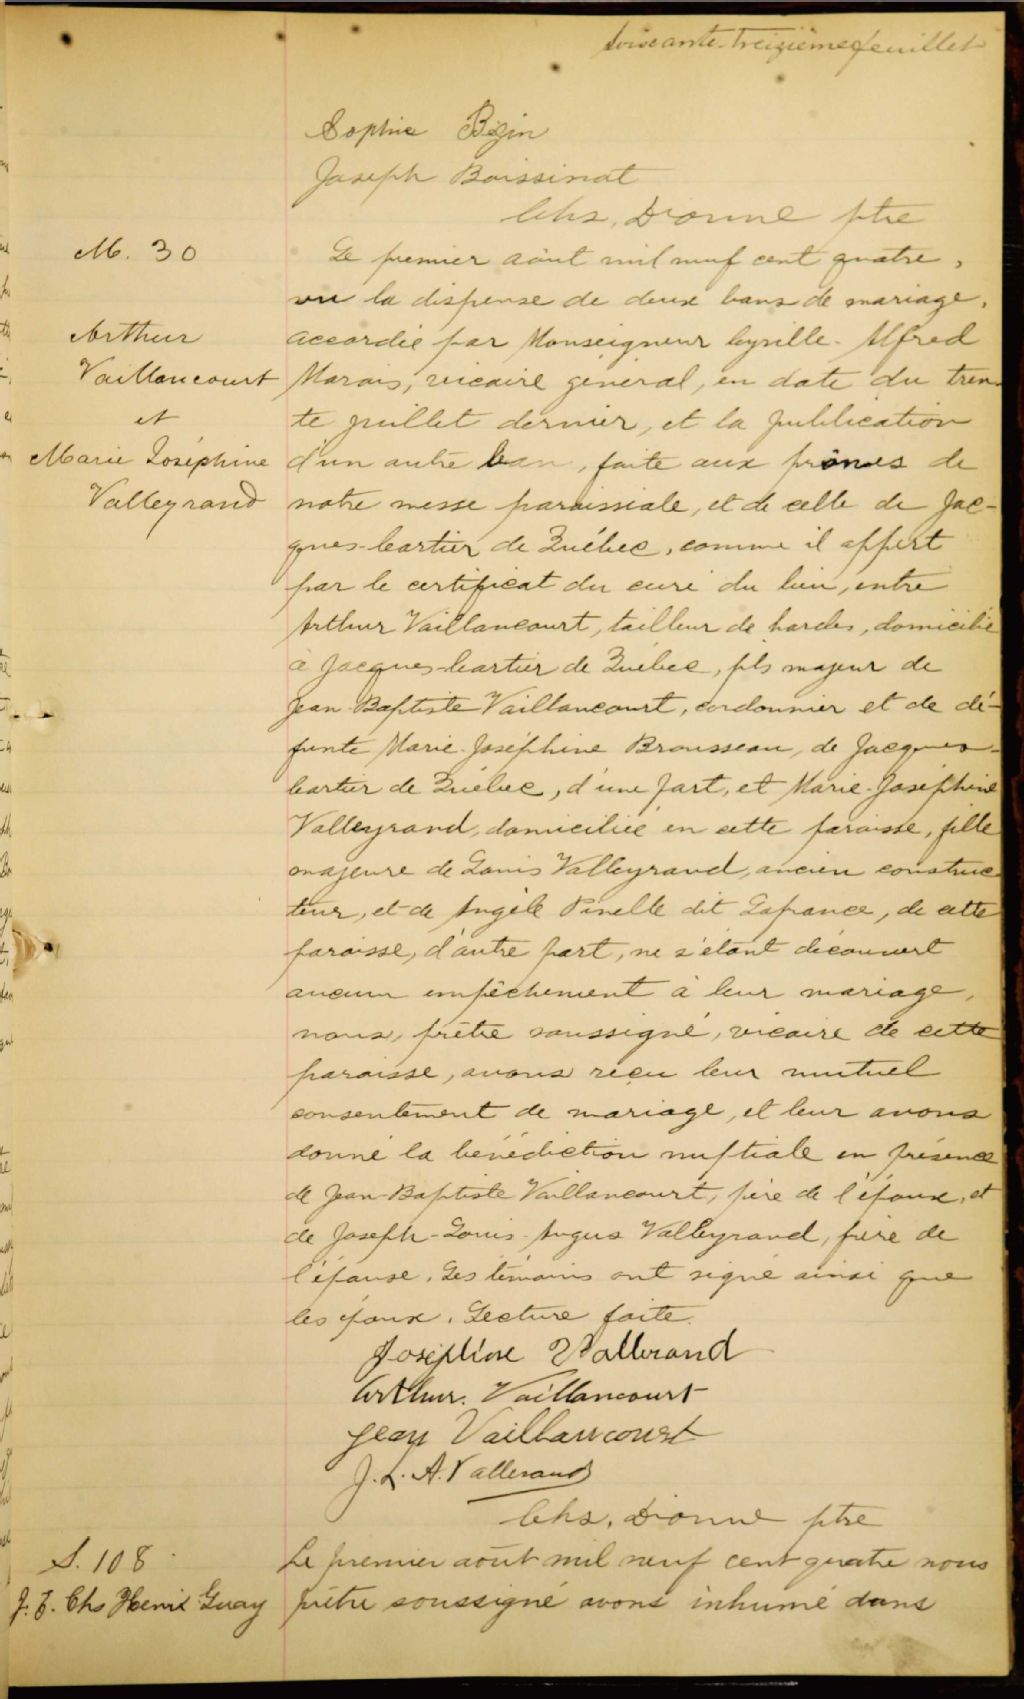 Soixante-treizième feuillet
Sophie Bégin
Joseph Boissinot
Chs. Dionne ptre
M. 30
Arthur
Vaillancourt
et
Marie Joséphine
Valleyrand
Le premier août mil neuf cent quatre,
vu la dispense de deux bans de mariage,
accordée par Monseigneur Cyrille-Alfred
Marois, vicaire général, en date du tren-
te juillet dernier, et la publication
d'un autre ban, faite aux prônes de
notre messe paroissiale, et de celle de Jac-
ques-Cartier de Québec, comme il appert
par le certificat du curé du lieu, entre
Arthur Vaillancourt, tailleur de hardes, domicilié
à Jacques-Cartier de Québec, fils majeur de
Jean-Baptiste Vaillancourt, cordonnier et de dé-
funte Marie-Joséphine Brousseau, de Jacques-
Cartier de Québec, d'une part, et Marie-Joséphine
Valleyrand, domiciliée en cette paroisse, fille
majeure de Louis Valleyrand, ancien construc-
teur, et de Angèle Pinelle dit Lafrance, de cette
paroisse, d'autre part, ne s'étant découvert
aucun empêchement à leur mariage,
nous, prêtre soussigné, vicaire de cette
paroisse, avons reçu leur mutuel
consentement de mariage, et leur avons
donné la bénédiction nuptiale en présence
de Jean-Baptiste Vaillancourt, père de l'époux, et
de Joseph-Louis-Angus Valleyrand, frère de
l'épouse. Les témoins ont signé ainsi que
les époux. Lecture faite.
Joséphine Vallerand
Arthur. Vaillancourt
Jean Vaillancourt
J. L. A. Vallerand
Chs. Dionne ptre
S. 108
J. E. Chs Henri Guay
Le premier août mil neuf cent quatre nous
prêtre soussigné avons inhumé dans